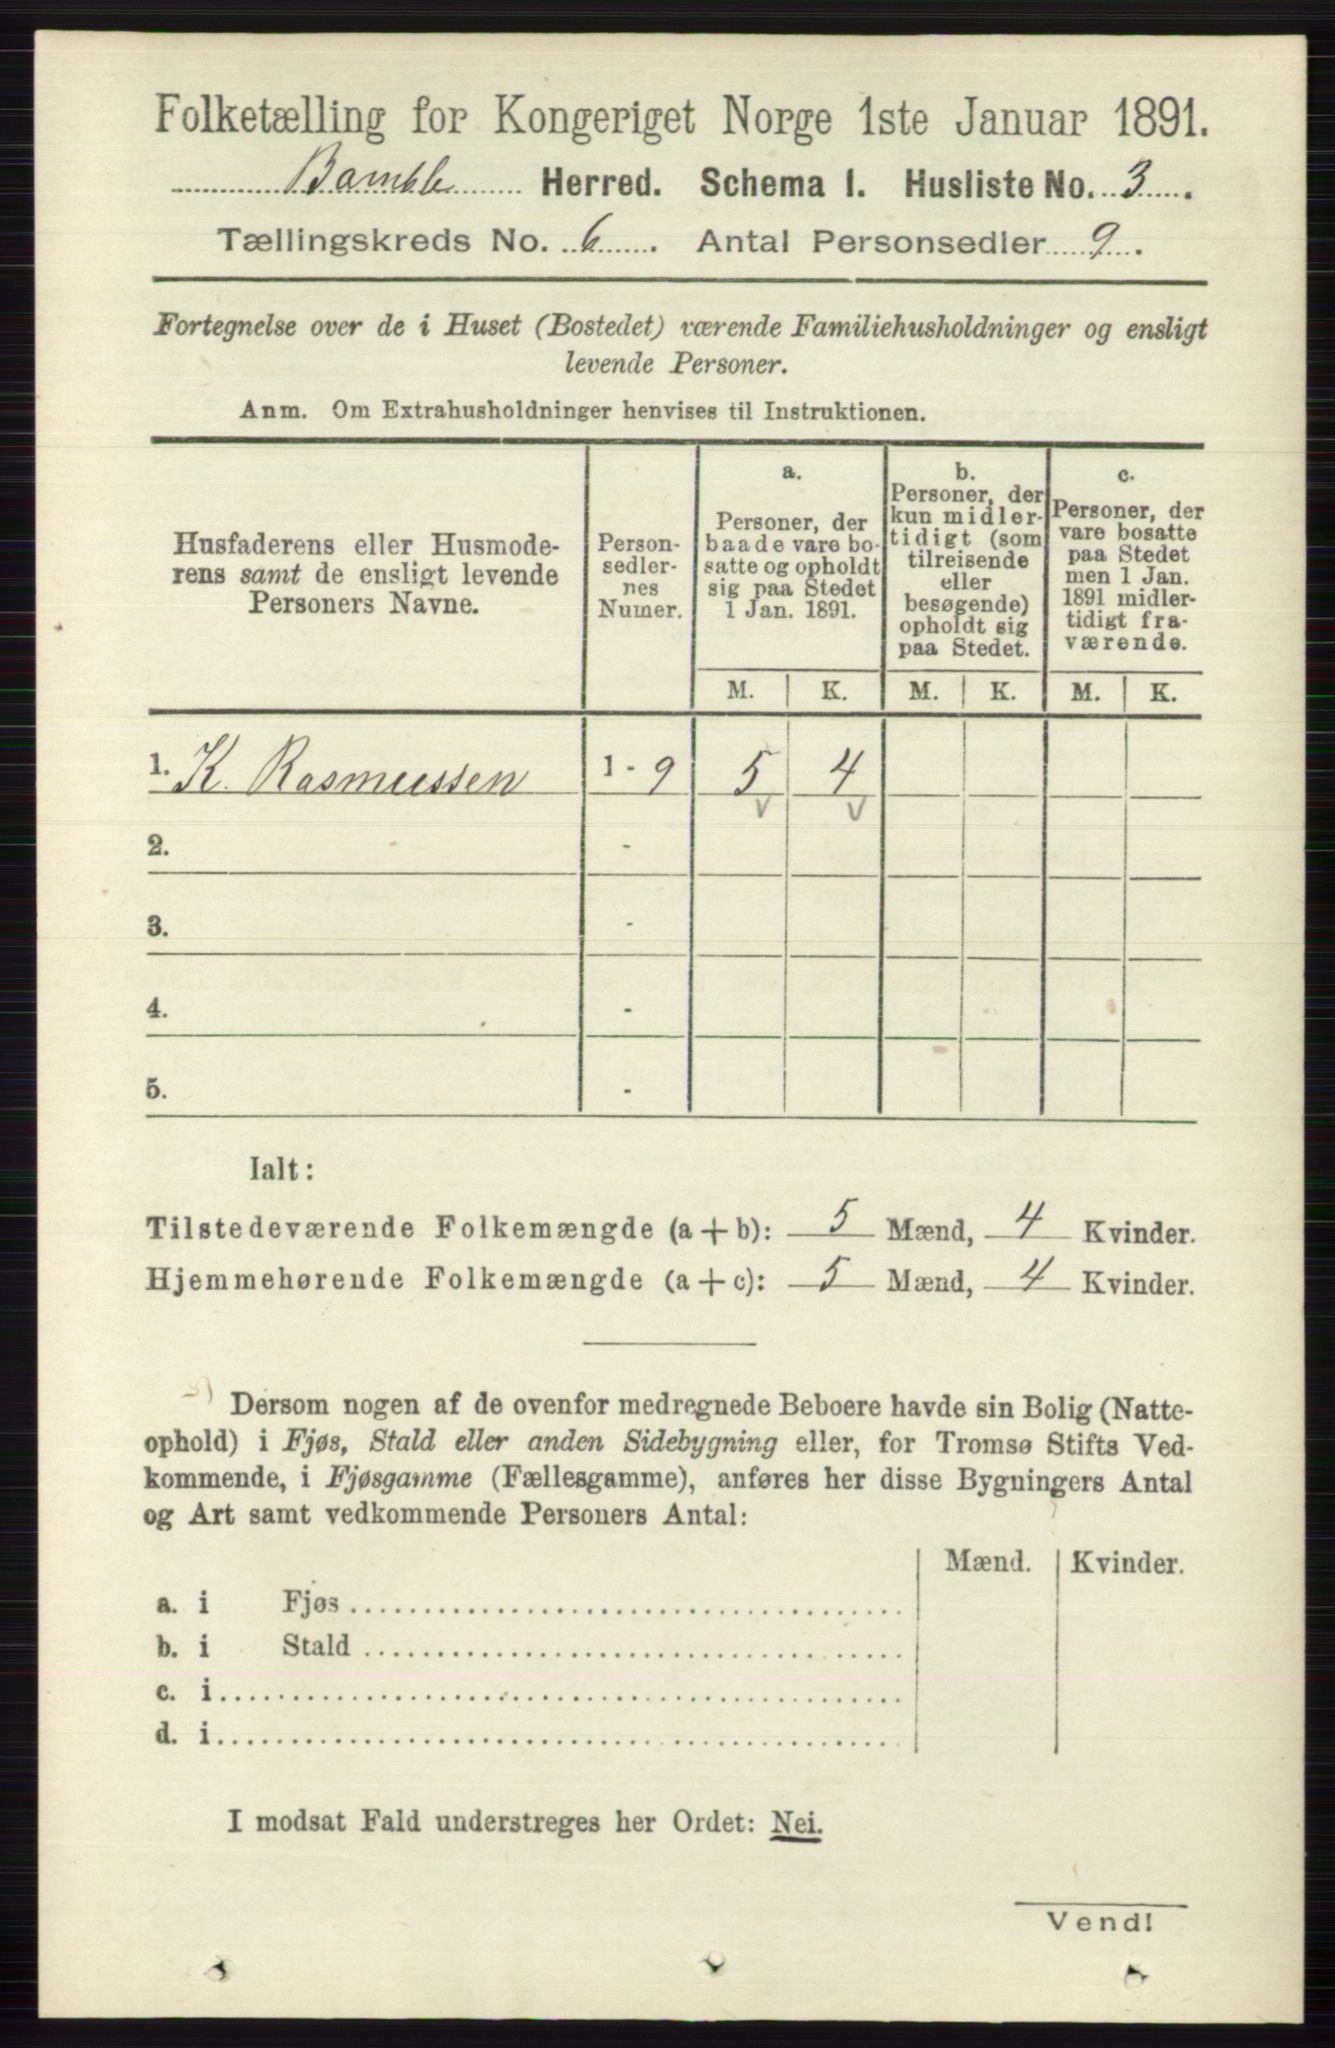 Folketælling for Kongeriget Norge 1ste Januar 1891.
Bamble Herred. Schema 1. Husliste No. 3.
Tællingskreds No. 6. Antal Personsedler 9.
Fortegnelse over de i Huset (Bostedet) værende Familiehusholdninger og ensligt
levende Personer.
Anm. Om Extrahusholdninger henvises til Instruktionen.
Husfaderens eller Husmode-
rens samt de ensligt levende
Personers Navne.
Person-
sedler-
nes
Numer.
a.
Personer, der
baade vare bo-
satte og opholdt
sig paa Stedet
1 Jan. 1891.
b.
Personer, der
kun midler-
tidigt (som
tilreisende
eller
besøgende)
opholdt sig
paa Stedet.
c.
Personer, der
vare bosatte
paa Stedet
men 1 Jan.
1891 midler-
tidigt fra-
værende.
M. K. M. K. M. K.
1. K. Rasmussen 1 - 9 5 4
2. -
3. -
4. -
5. -
Ialt:
Tilstedeværende Folkemængde (a + b): 5 Mænd, 4 Kvinder.
Hjemmehørende Folkemængde (a + c): 5 Mænd, 4 Kvinder.
Dersom nogen af de ovenfor medregnede Beboere havde sin Bolig (Natte-
ophold) i Fjøs, Stald eller anden Sidebygning eller, for Tromsø Stifts Ved-
kommende, i Fjøsgamme (Fællesgamme), anføres her disse Bygningers Antal
og Art samt vedkommende Personers Antal:
Mænd. Kvinder.
a. i Fjøs
b. i Stald
c. i
d. i
I modsat Fald understreges her Ordet: Nei.
Vend!